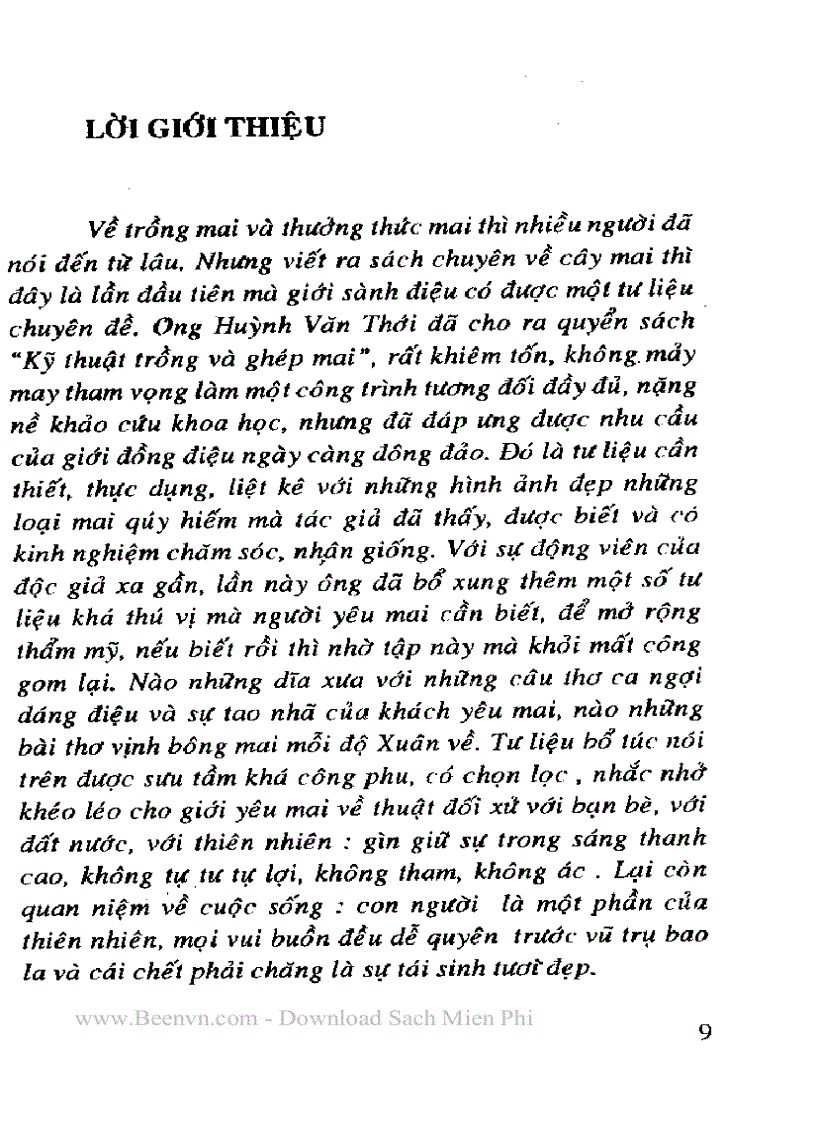 LỜI GIỚI THIỆU
Về trồng mai và thưởng thức mai thì nhiều người đã
nói đến từ lâu. Nhưng viết ra sách chuyên về cây mai thì
đây là lần đầu tiên mà giới sành điệu có được một tư liệu
chuyên đề. Ông Huỳnh Văn Thới đã cho ra quyển sách
“Kỹ thuật trồng và ghép mai”, rất khiêm tốn, không mảy
may tham vọng làm một công trình tương đối đầy đủ, nặng
nề khảo cứu khoa học, nhưng đã đáp ưng được nhu cầu
của giới đồng điệu ngày càng đông đảo. Đó là tư liệu cần
thiết, thực dụng, liệt kê với những hình ảnh đẹp những
loại mai qúy hiếm mà tác giả đã thấy, được biết và có
kinh nghiệm chăm sóc, nhân giống. Với sự động viên của
độc giả xa gần, lần này ông đã bổ xung thêm một số tư
liệu khá thú vị mà người yêu mai cần biết, để mở rộng
thẩm mỹ, nếu biết rồi thì nhờ tập này mà khỏi mất công
gom lại. Nào những dĩa xưa với những câu thơ ca ngợi
dáng điệu và sự tao nhã của khách yêu mai, nào những
bài thơ vịnh bông mai mỗi độ Xuân về. Tư liệu bổ túc nói
trên được sưu tầm khá công phu, có chọn lọc , nhắc nhở
khéo léo cho giới yêu mai về thuật đối xử với bạn bè, với
đất nước, với thiên nhiên : gìn giữ sự trong sáng thanh
cao, không tự tư tự lợi, không tham, không ác . Lại còn
quan niệm về cuộc sống : con người là một phần của
thiên nhiên, mọi vui buồn đều dễ quyên trước vũ trụ bao
la và cái chết phải chăng là sự tái sinh tươi đẹp.
www.Beenvn.com - Download Sach Mien Phi
9